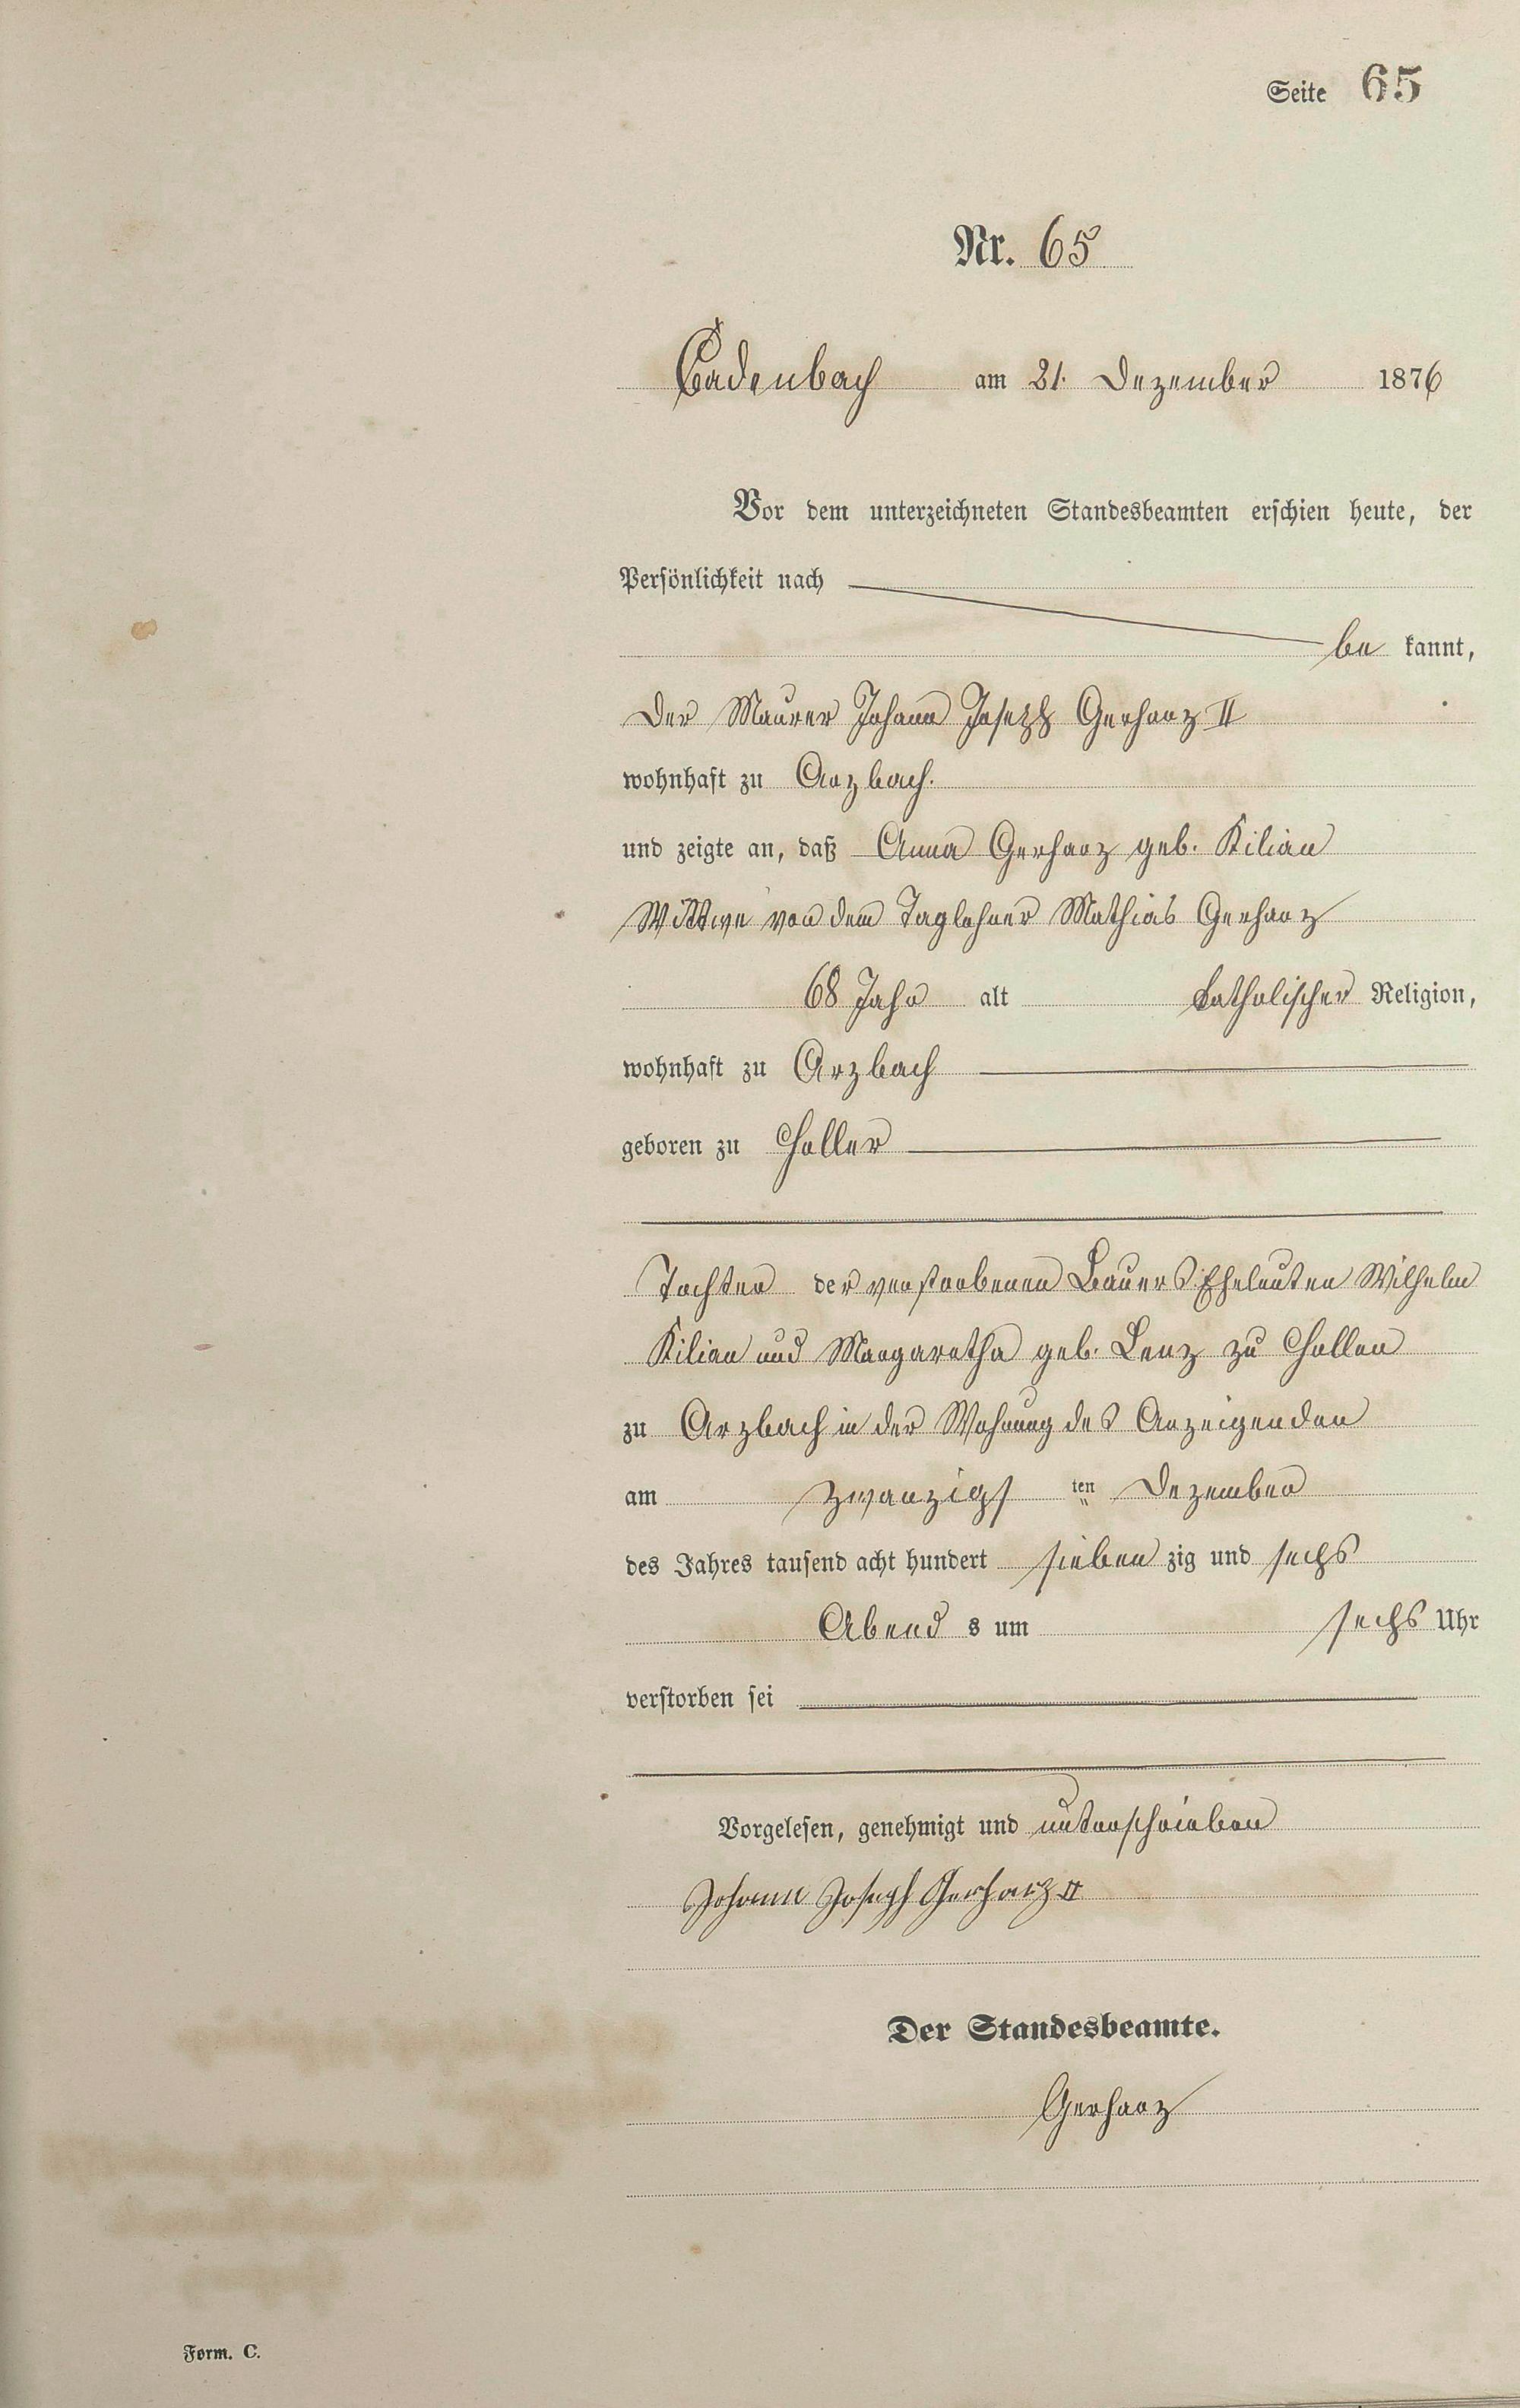 Seite 65
Nr. 65
Cadenbach am 21. Dezember 1876
Vor dem unterzeichneten Standesbeamten erschien heute, der
Persönlichkeit nach
be kannt,
Der Maurer Johann Joseph Gerharz II
wohnhaft zu Arzbach.
und zeigte an, daß Anna Gerharz geb. Kilian
Wittwe von dem Taglohner Mathias Gerharz
68 Jahr alt katholischer Religion,
wohnhaft zu Arzbach
geboren zu Holler
Tochter der verstorbenen Bauers Eheleuten Wilhelm
Kilian und Margaretha geb. Lenz zu Holler
zu Arzbach in der Wohnung des Anzeigenden
am zwanzigs ten Dezember
des Jahres tausend acht hundert sieben zig und sechs
Abend s um sechs Uhr
verstorben sei
Vorgelesen, genehmigt und unterschrieben
Johann Joseph Gerharz II
Der Standesbeamte.
Gerharz
Form. C.